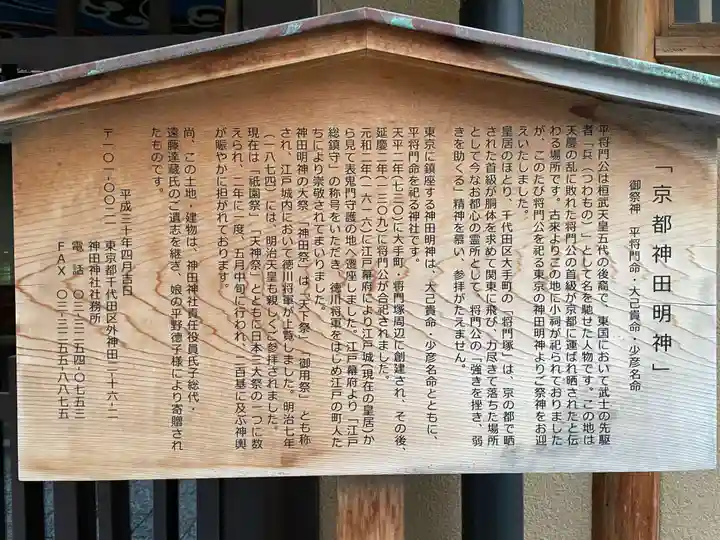 「京都神田明神」
御祭神　平将門命・大己貴命・少彦名命
平将門公は桓武天皇五代の後裔で、東国において武士の先駆
者「兵（つわもの）」として名を馳せた人物です。この地は
天慶の乱に敗れた将門公の首級が京都に運ばれ晒されたと伝
わる場所です。古来よりこの地に小祠が祀られておりました
が、このたび将門公を祀る東京の神田明神よりご祭神をお迎
えいたしました。
皇居のほとり、千代田区大手町の「将門塚」は、京の都で晒
された首級が胴体を求めて関東に飛び、力尽きて落ちた場所
として今なお都心の霊所として、将門公の「強きを挫き、弱
きを助くる」精神を慕い、参拝がたえません。
東京に鎮座する神田明神は、大己貴命・少彦名命とともに、
平将門命を祀る神社です。
天平二年（七三〇）に大手町・将門塚周辺に創建され、その後、
延慶二年（一三〇九）に将門公が合祀されました。
元和二年（一六一六）に江戸幕府により江戸城（現在の皇居）か
ら見て表鬼門守護の地へ遷座しました。江戸幕府より「江戸
総鎮守」の称号をいただき、徳川将軍をはじめ江戸の町人た
ちにより崇敬されてまいりました。
神田明神の大祭、「神田祭」は「天下祭」「御用祭」とも称
され、江戸城内において徳川将軍が上覧しました。明治七年
（一八七四）には、明治天皇も親しくご参拝されました。
現在は「祇園祭」「天神祭」とともに日本三大祭の一つに数
えられ、二年に一度、五月中旬に行われ、二百基に及ぶ神輿
が賑やかに担がれております。
尚、この土地・建物は、神田神社責任役員氏子総代・
遠藤達蔵氏のご遺志を継ぎ、娘の平野徳子様により寄贈され
たものです。
平成三十年四月吉日
〒一〇一-〇〇二一　東京都千代田区外神田二-十六-二
神田神社社務所
電話　〇三-三二五四-〇七五三
ＦＡＸ　〇三-三二五五-八八七五